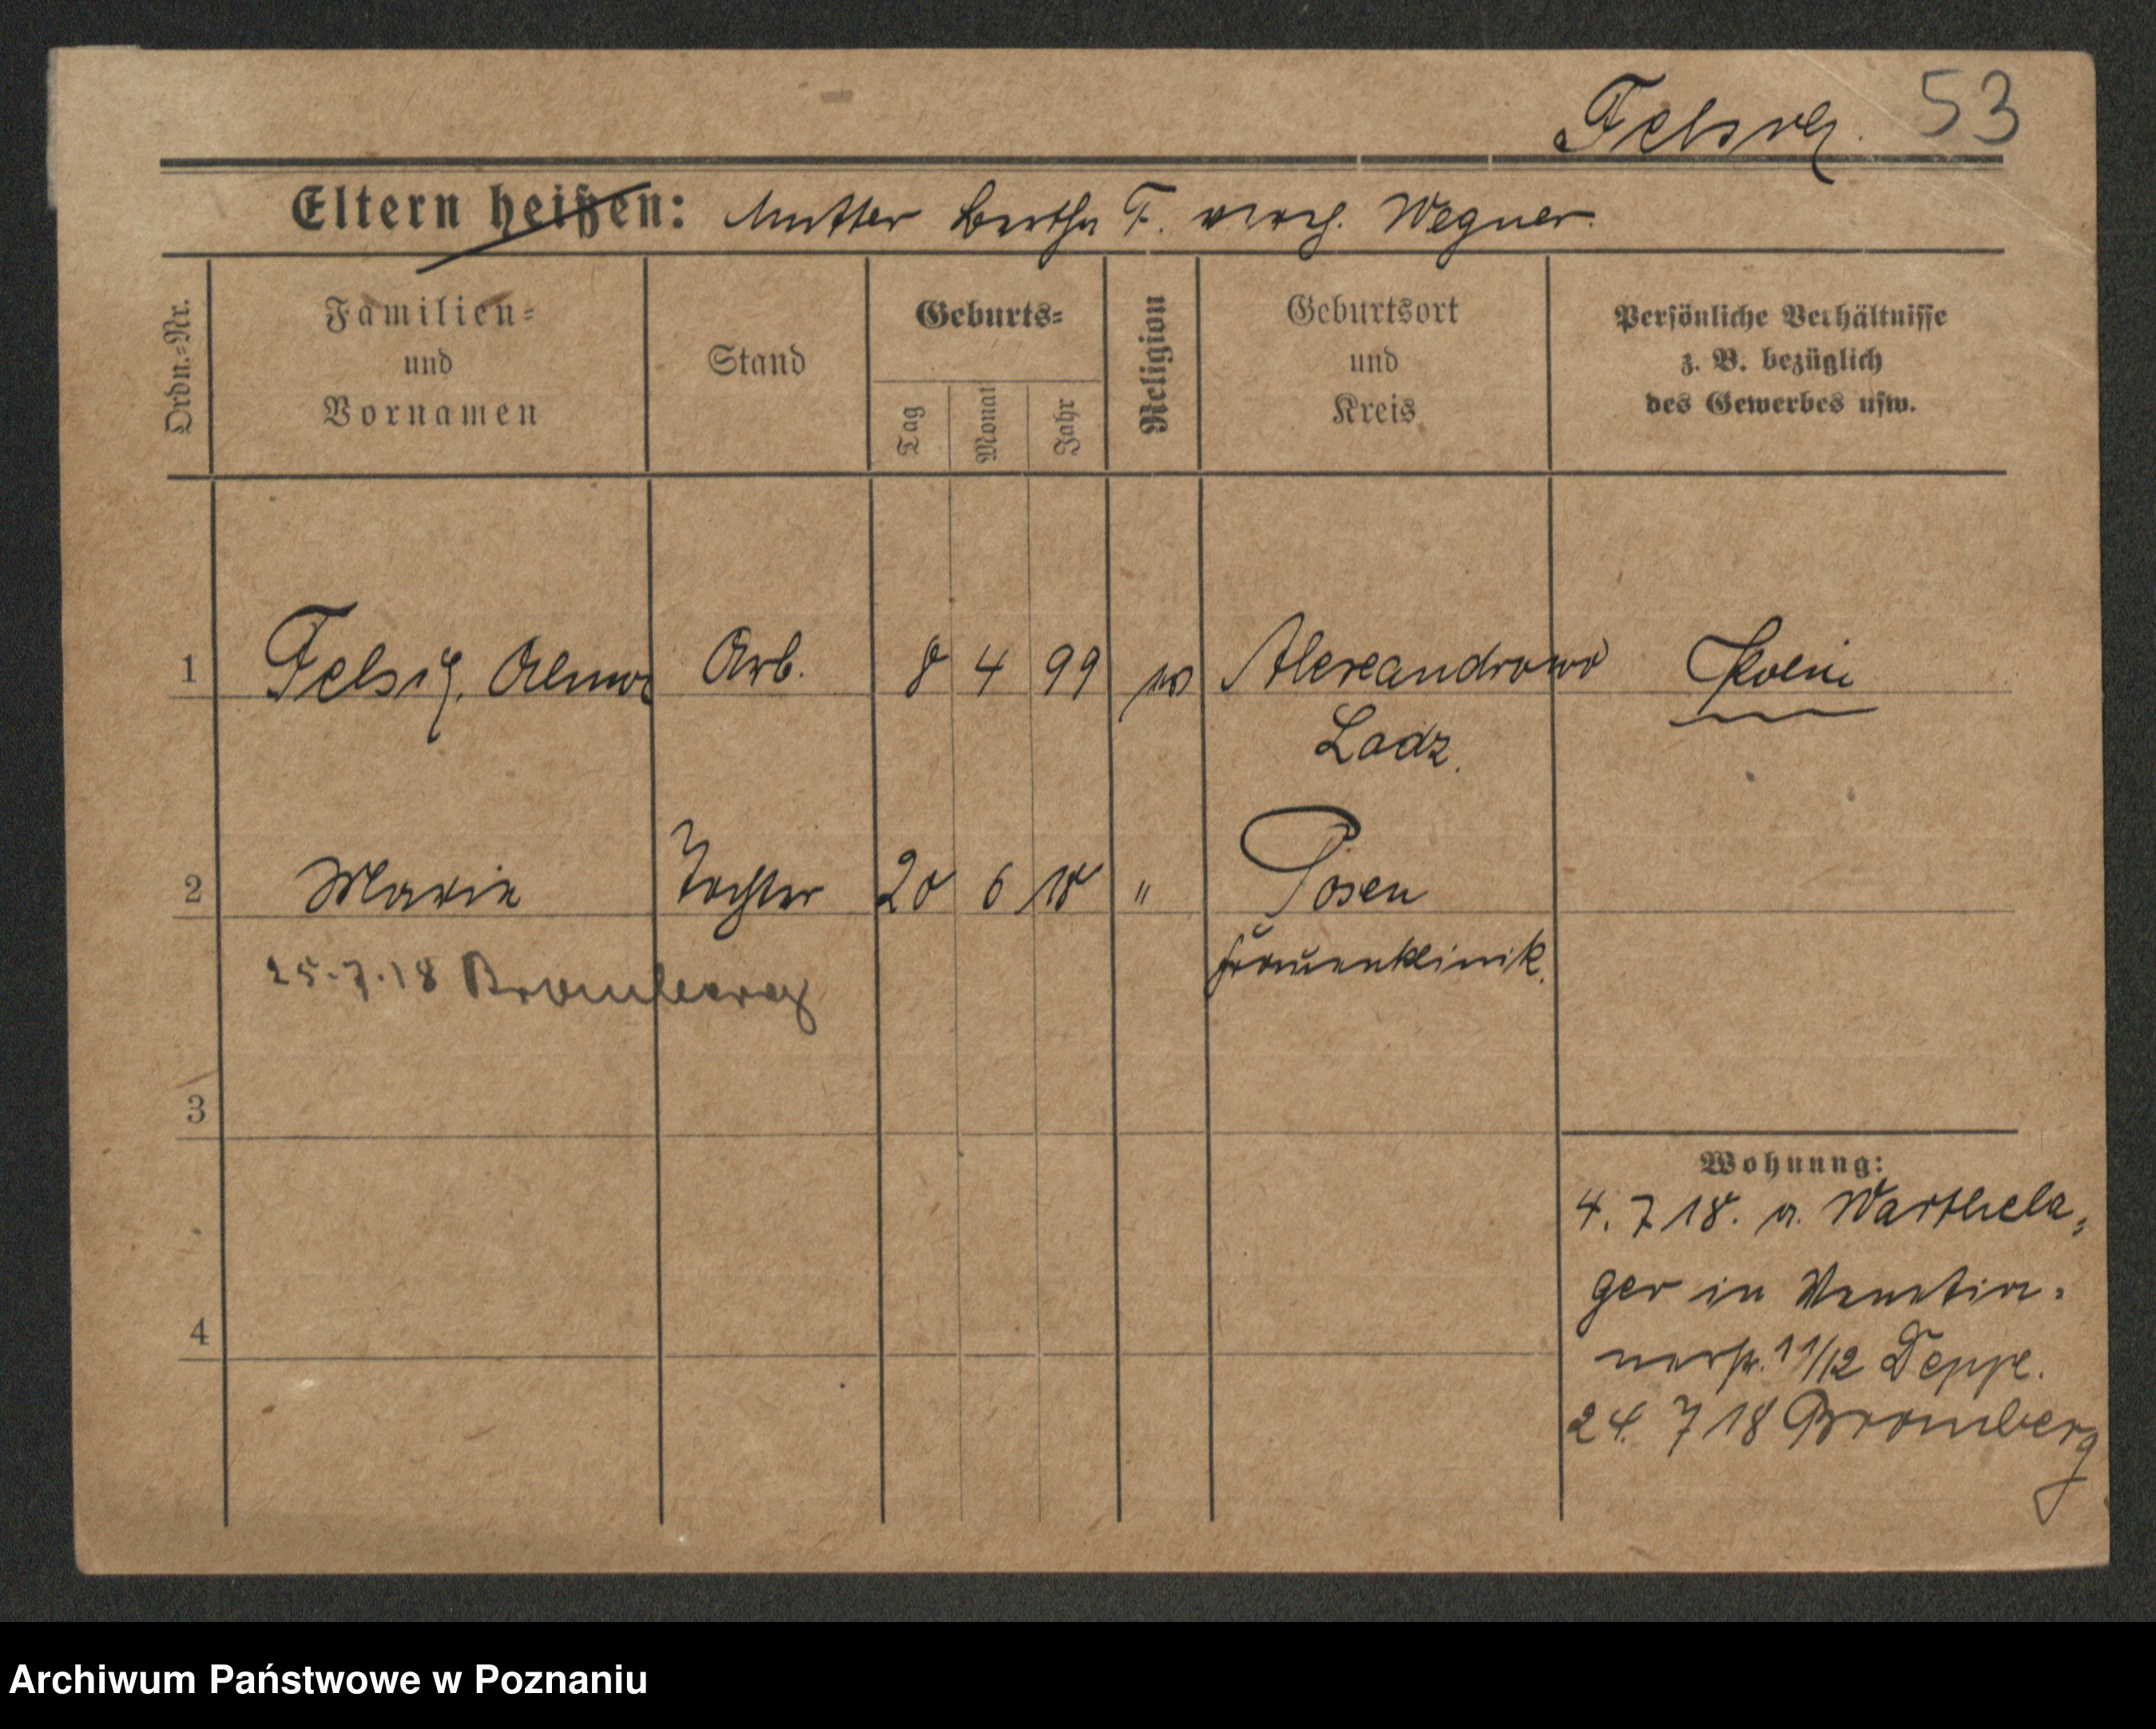 Felsig. 53
Eltern heißen: Mutter Bertha F. verw. Wegner.
Ordn.-Nr.
Familien- und Vornamen
Stand
Geburts-
Tag
Monat
Jahr
Religion
Geburtsort und Kreis
Persönliche Verhältnisse z. B. bezüglich des Gewerbes usw.
1 Felsig, Alma Arb. 8 4 99 Alexandrowo
Lodz.
2 Maria Tochter 20 6 18 " Posen
Frauenklinik.
25.7.18 Bromberg
3
Wohnung:
4. 7 18. a. Warthela-
ger in Venetia-
nerstr. 11/12 Deppe.
4
24. 7 18 Bromberg
Archiwum Państwowe w Poznaniu